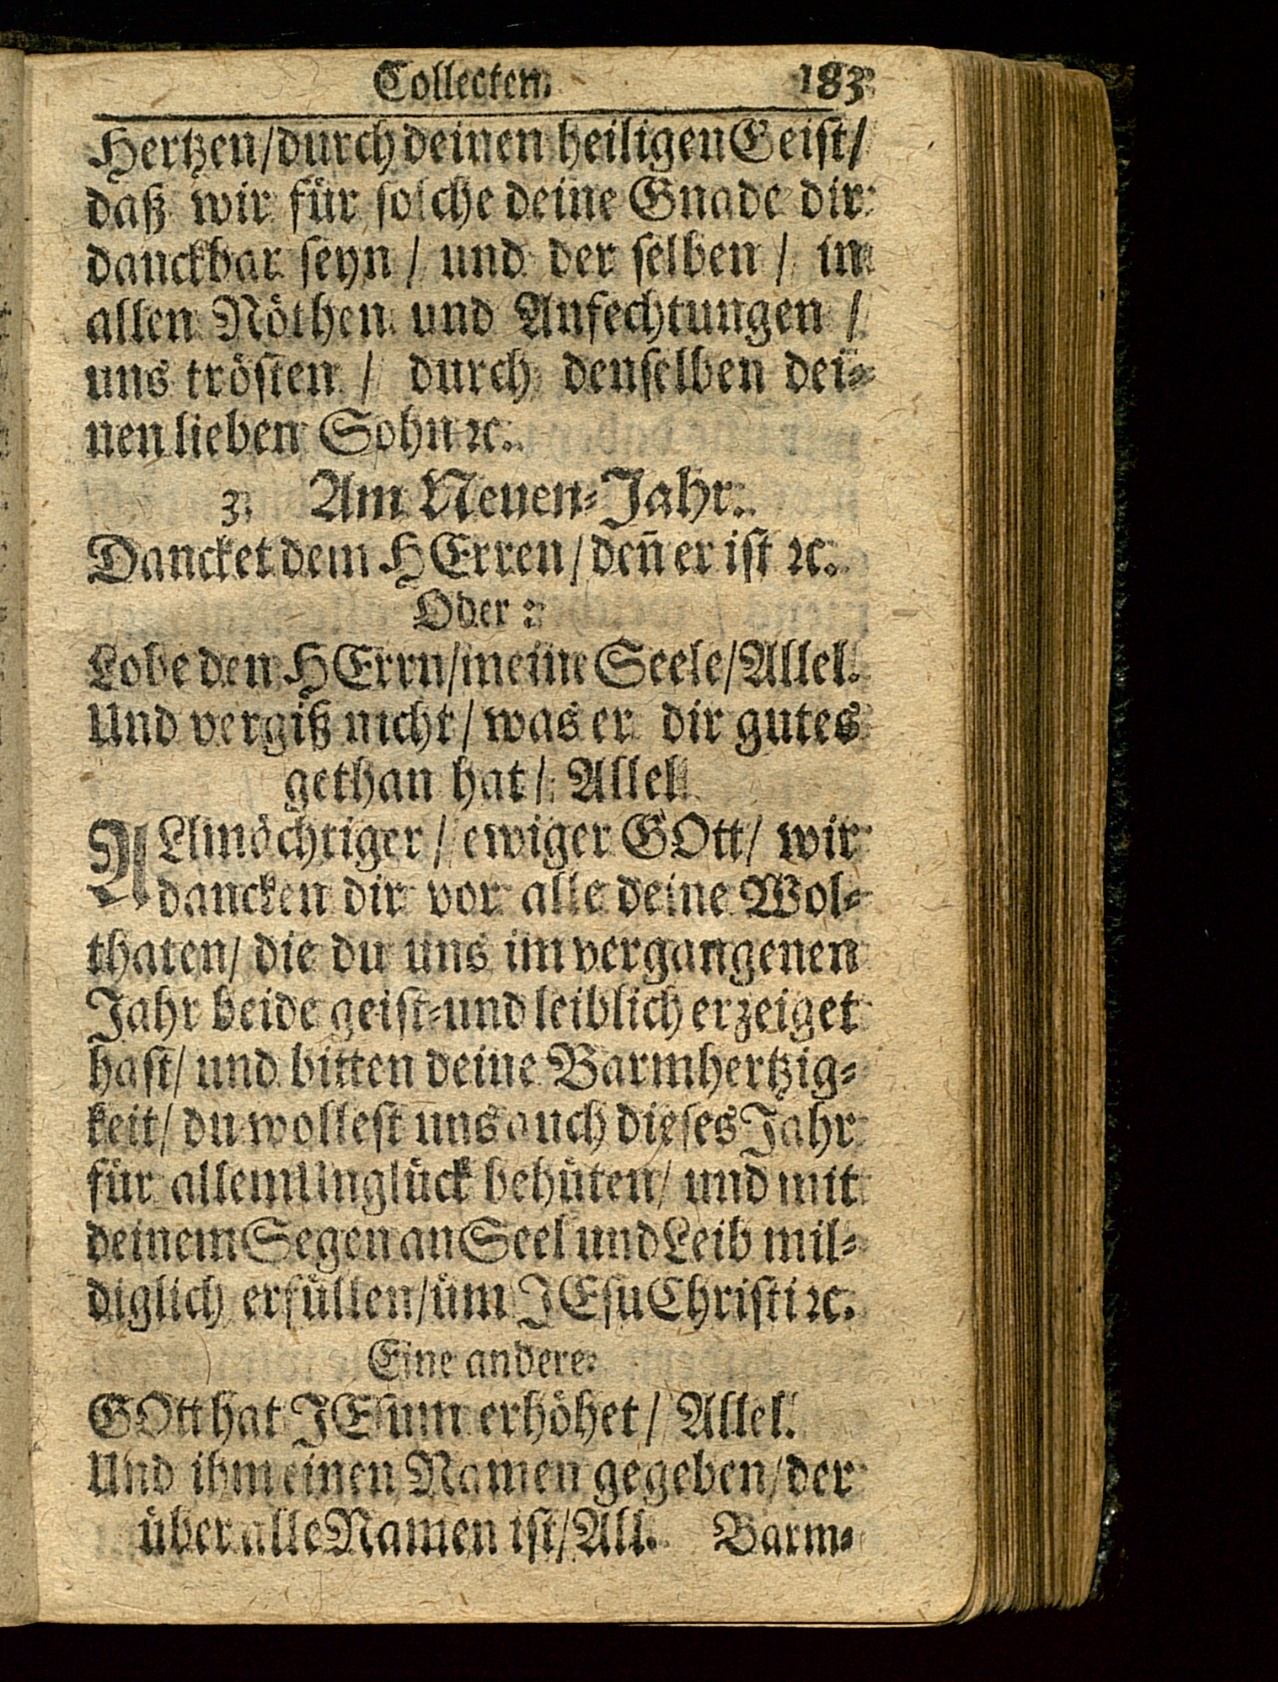 Collecten. 183
Hertzen/durch deinen heiligen Geist/
daß wir für solche deine Gnade dir
danckbar seyn / und der selben / in
allen Nöthen und Anfechtungen /
uns trösten / durch denselben dei-
nen lieben Sohn ꝛc.
3. Am Neuen-Jahr.
Dancket dem HErren/deñ er ist ꝛc.
Oder :
Lobe den HErrn/meine Seele/Allel.
Und vergiß nicht/ was er dir gutes
gethan hat/ Allel.
ALlmächtiger / ewiger GOtt/ wir
dancken dir vor alle deine Wol-
thaten/ die du uns im vergangenen
Jahr beide geist-und leiblich erzeiget
hast/ und bitten deine Barmhertzig-
keit/ du wollest uns auch dieses Jahr
für allem Unglück behüten/ und mit
deinem Segen an Seel und Leib mil-
diglich erfüllen/üm JEsu Christi ꝛc.
Eine andere.
GOtt hat JEsum erhöhet/ Allel.
Und ihm einen Namen gegeben/der
über alle Namen ist/All. Barm-